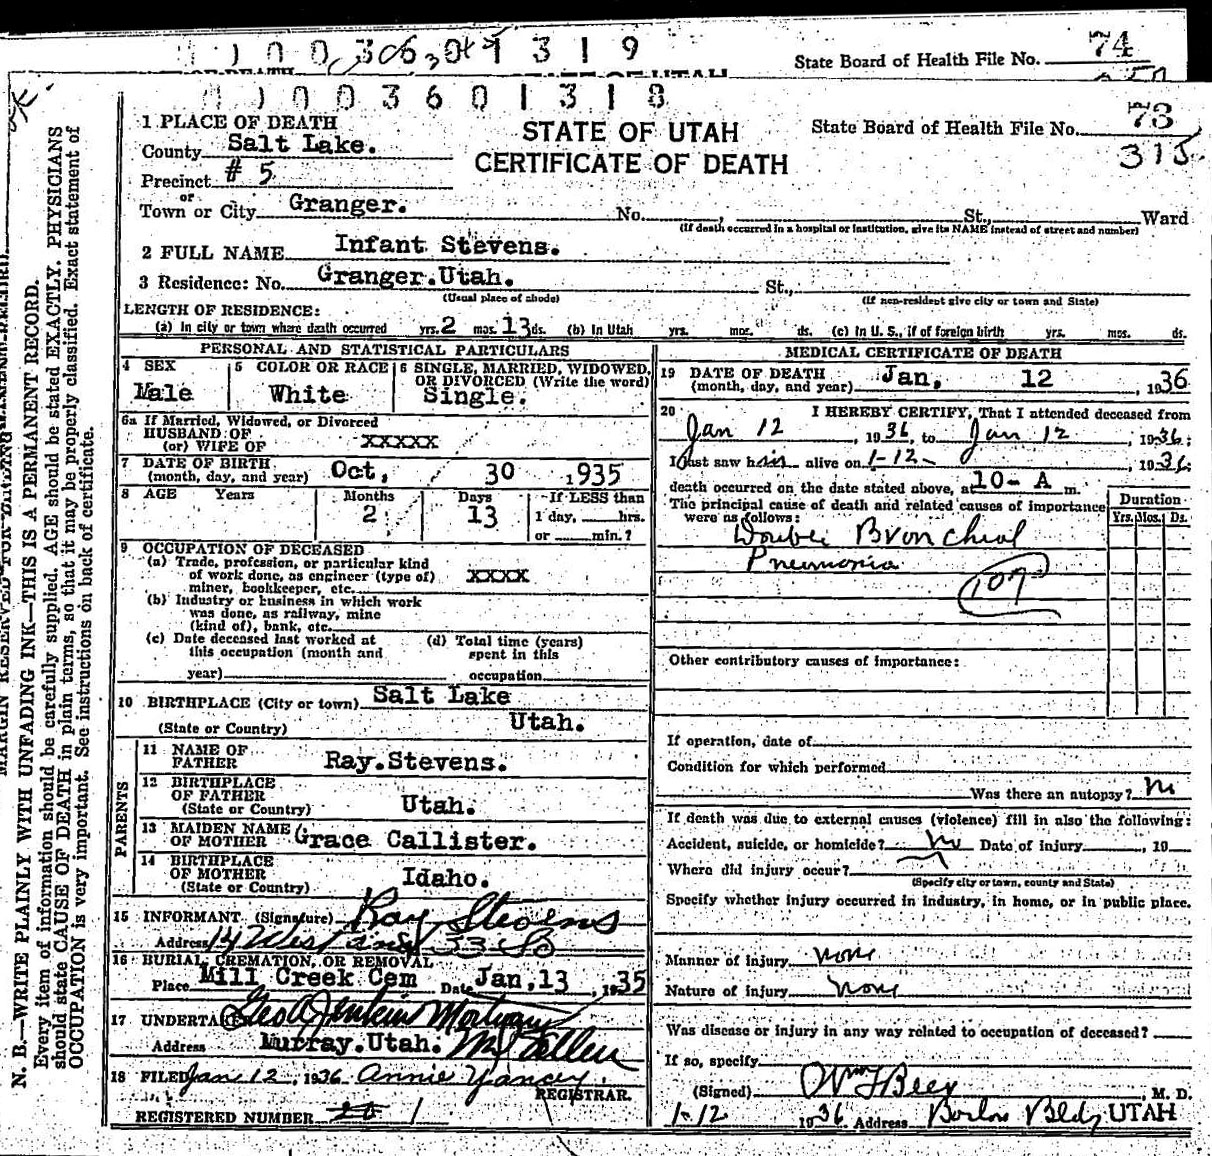 1 0 0 3 6 0 1 3 1 9
State Board of Health File No. 74
OF DEATH STATE OF UTAH
1 0 0 3 6 0 1 3 1 8
MARGIN RESERVED FOR BINDING
N. B.—WRITE PLAINLY WITH UNFADING INK—THIS IS A PERMANENT RECORD.
Every item of information should be carefully supplied. AGE should be stated EXACTLY. PHYSICIANS
should state CAUSE OF DEATH in plain terms, so that it may be properly classified. Exact statement of
OCCUPATION is very important. See instructions on back of certificate.
1 PLACE OF DEATH
County Salt Lake.
Precinct # 5
or
Town or City Granger.
STATE OF UTAH
CERTIFICATE OF DEATH
State Board of Health File No. 73
315
No. , St., Ward
(If death occurred in a hospital or institution, give its NAME instead of street and number)
2 FULL NAME Infant Stevens.
3 Residence: No. Granger.Utah. St.,
(Usual place of abode) (If non-resident give city or town and State)
LENGTH OF RESIDENCE:
(a) In city or town where death occurred yrs. 2 mos. 13 ds. (b) In Utah yrs. mos. ds. (c) In U. S., if of foreign birth yrs. mos. ds.
PERSONAL AND STATISTICAL PARTICULARS
4 SEX
Male
5 COLOR OR RACE
White
6 SINGLE, MARRIED, WIDOWED,
OR DIVORCED (Write the word)
Single.
6a If Married, Widowed, or Divorced
HUSBAND OF
(or) WIFE OF XXXXX
7 DATE OF BIRTH
(month, day, and year) Oct, 30 1935
8 AGE Years Months Days If LESS than
2 13 1 day, hrs.
or min.?
9 OCCUPATION OF DECEASED
(a) Trade, profession, or particular kind
of work done, as engineer (type of) XXXX
miner, bookkeeper, etc.
(b) Industry or business in which work
was done, as railway, mine
(kind of), bank, etc.
(c) Date deceased last worked at (d) Total time (years)
this occupation (month and spent in this
year) occupation
10 BIRTHPLACE (City or town) Salt Lake
(State or Country) Utah.
PARENTS
11 NAME OF
FATHER Ray.Stevens.
12 BIRTHPLACE
OF FATHER
(State or Country) Utah.
13 MAIDEN NAME
OF MOTHER Grace Callister.
14 BIRTHPLACE
OF MOTHER
(State or Country) Idaho.
15 INFORMANT (Signature) Ray Stevens
Address 14 West and 33 So
16 BURIAL, CREMATION, OR REMOVAL
Place Mill Creek Cem Date Jan,13 , 1935
17 UNDERTAKER Geo A Jenkins Mortuary
Address Murray.Utah.
18 FILED Jan 12, 1936 Annie Yancey.
REGISTRAR.
REGISTERED NUMBER 1
MEDICAL CERTIFICATE OF DEATH
19 DATE OF DEATH
(month, day, and year) Jan, 12 , 1936
20 I HEREBY CERTIFY, That I attended deceased from
Jan 12 , 1936, to Jan 12 , 1936;
I last saw him alive on 1-12- , 1936;
death occurred on the date stated above, at 10- A m.
The principal cause of death and related causes of importance
were as follows:
Duration
Yrs. Mos. Ds.
Double Bronchial
Pneumonia
107
Other contributory causes of importance:
If operation, date of
Condition for which performed
Was there an autopsy? no
If death was due to external causes (violence) fill in also the following:
Accident, suicide, or homicide? no Date of injury , 19
Where did injury occur?
(Specify city or town, county and State)
Specify whether injury occurred in industry, in home, or in public place.
Manner of injury none
Nature of injury none
Was disease or injury in any way related to occupation of deceased?
If so, specify
(Signed) Wm F Beer , M. D.
1-12 1936 Address Boston Bldg UTAH